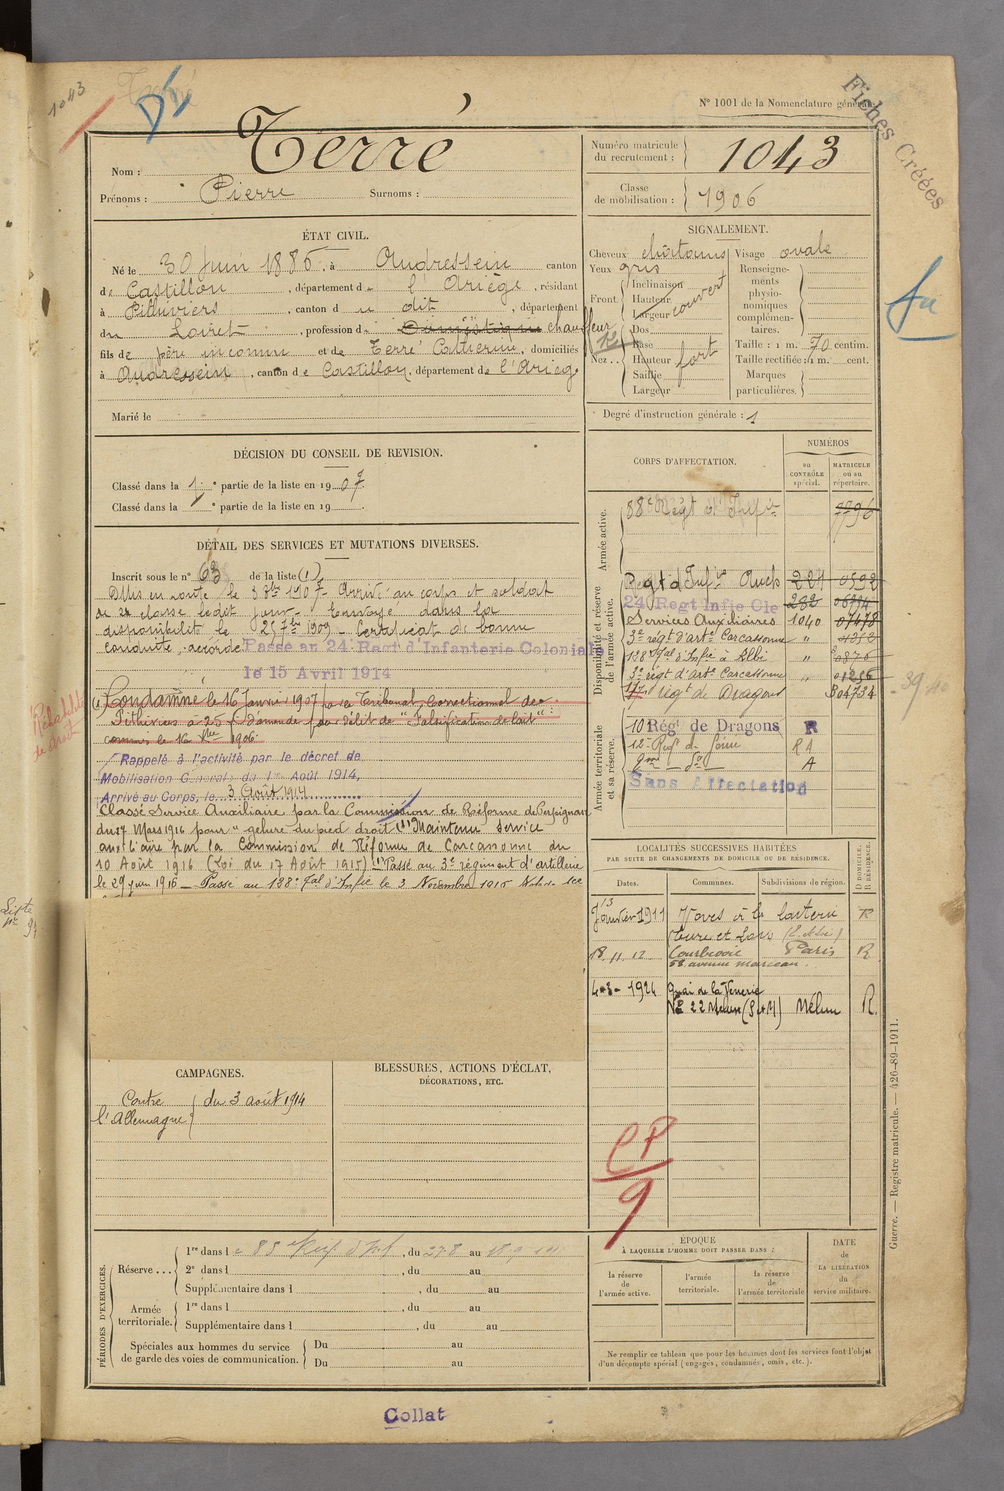 1043
N° 1001 de la Nomenclature générale
Fiches Créées
Nom : Terré
Prénoms : Pierre Surnoms :
Numéro matricule du recrutement : 1043
Classe de mobilisation : 1906
ÉTAT CIVIL.
Né le 30 Juin 1886, à Audressein canton
de Castillon, département de l'Ariège, résidant
à Pithiviers, canton du dit, département
du Loiret, profession de Domestique chauffeur
fils de père inconnu et de Terré Catherine, domiciliés
à Audressein, canton de Castillon, département de l'Ariège
Marié le
SIGNALEMENT.
Cheveux châtains
Yeux gris
Front Inclinaison Hauteur Largeur couvert
Nez Dos Base Hauteur Saillie Largeur fort
Visage ovale
Renseignements physionomiques complémentaires.
Taille : 1 m. 70 centim.
Taille rectifiée : 1 m. cent.
Marques particulières.
Degré d'instruction générale : 1
DÉCISION DU CONSEIL DE REVISION.
Classé dans la 1re partie de la liste en 1907.
Classé dans la e partie de la liste en 19
DÉTAIL DES SERVICES ET MUTATIONS DIVERSES.
Inscrit sous le n° 63 de la liste (1)
Mis en route le 8 8bre 1907. Arrivé au corps et soldat
de 2e classe ledit jour. Envoyé dans la
disponibilité le 25 7bre 1909. Certificat de bonne
conduite accordé Passé au 24 Regt d'Infanterie Coloniale
le 15 Avril 1914
(1) Condamné le 16 Janvier 1907 par le Tribunal Correctionnel de
Pithiviers à 25 f d'amende pour délit de "Falsification de lait"
commis le 16 1906.
Réhabilité de droit
Rappelé à l'activité par le décret de
Mobilisation Générale du 1er Août 1914,
Arrivé au Corps, le 3 Août 1914
Classé Service Auxiliaire par la Commission de Réforme de Perpignan
du 17 Mars 1916 pour "gelure du pied droit (1) Maintenu Service
auxiliaire par la Commission de Réforme de Carcassonne du
10 Août 1916 (Loi du 17 Août 1915) (1) Passé au 3e régiment d'artillerie
le 29 juin 1916 — Passé au 128e Tal d'Infie le 3 Novembre 1916
CORPS D'AFFECTATION.
NUMÉROS
au CONTRÔLE spécial.
MATRICULE ou au répertoire.
Armée active.
88e Régt d'Infie 7796
Disponibilité et réserve de l'armée active.
Regt d'Infie Auch 221 0592
24 Regt Infie Cle 282
Services Auxiliaires 1040
3e régt d'arte Carcassonne "
128e Tal d'Infie à Albi "
3e régt d'Arte Carcassonne " 01256
régt de Dragons 04734
39/40
Armée territoriale et sa réserve.
10 Régt de Dragons R
A
Sans Affectation
LOCALITÉS SUCCESSIVES HABITÉES
PAR SUITE DE CHANGEMENTS DE DOMICILE OU DE RÉSIDENCE.
Dates. Communes. Subdivisions de région. D DOMICILE. R RÉSIDENCE.
13 Janvier 1911 R
18.11.12 Courbevoie Paris R
58 avenue Marceau.
4-3-1924 Quai de la Vénerie
N° 22 Melun (S et M) Melun R.
CAMPAGNES.
Contre l'Allemagne du 3 août 1914
BLESSURES, ACTIONS D'ÉCLAT,
DÉCORATIONS, ETC.
CP
9
PÉRIODES D'EXERCICES.
Réserve... 1re dans le 88e Régt d'Inf, du 27 8 au
2e dans l , du au
Supplémentaire dans l , du au
Armée territoriale. 1re dans l , du au
Supplémentaire dans l , du au
Spéciales aux hommes du service de garde des voies de communication. Du au
Du au
ÉPOQUE
À LAQUELLE L'HOMME DOIT PASSER DANS :
la réserve de l'armée active.
l'armée territoriale.
la réserve de l'armée territoriale
DATE de LA LIBÉRATION du service militaire.
Ne remplir ce tableau que pour les hommes dont les services font l'objet
d'un décompte spécial (engagés, condamnés, omis, etc.).
Guerre. — Registre matricule. — 426-89-1911.
Collat